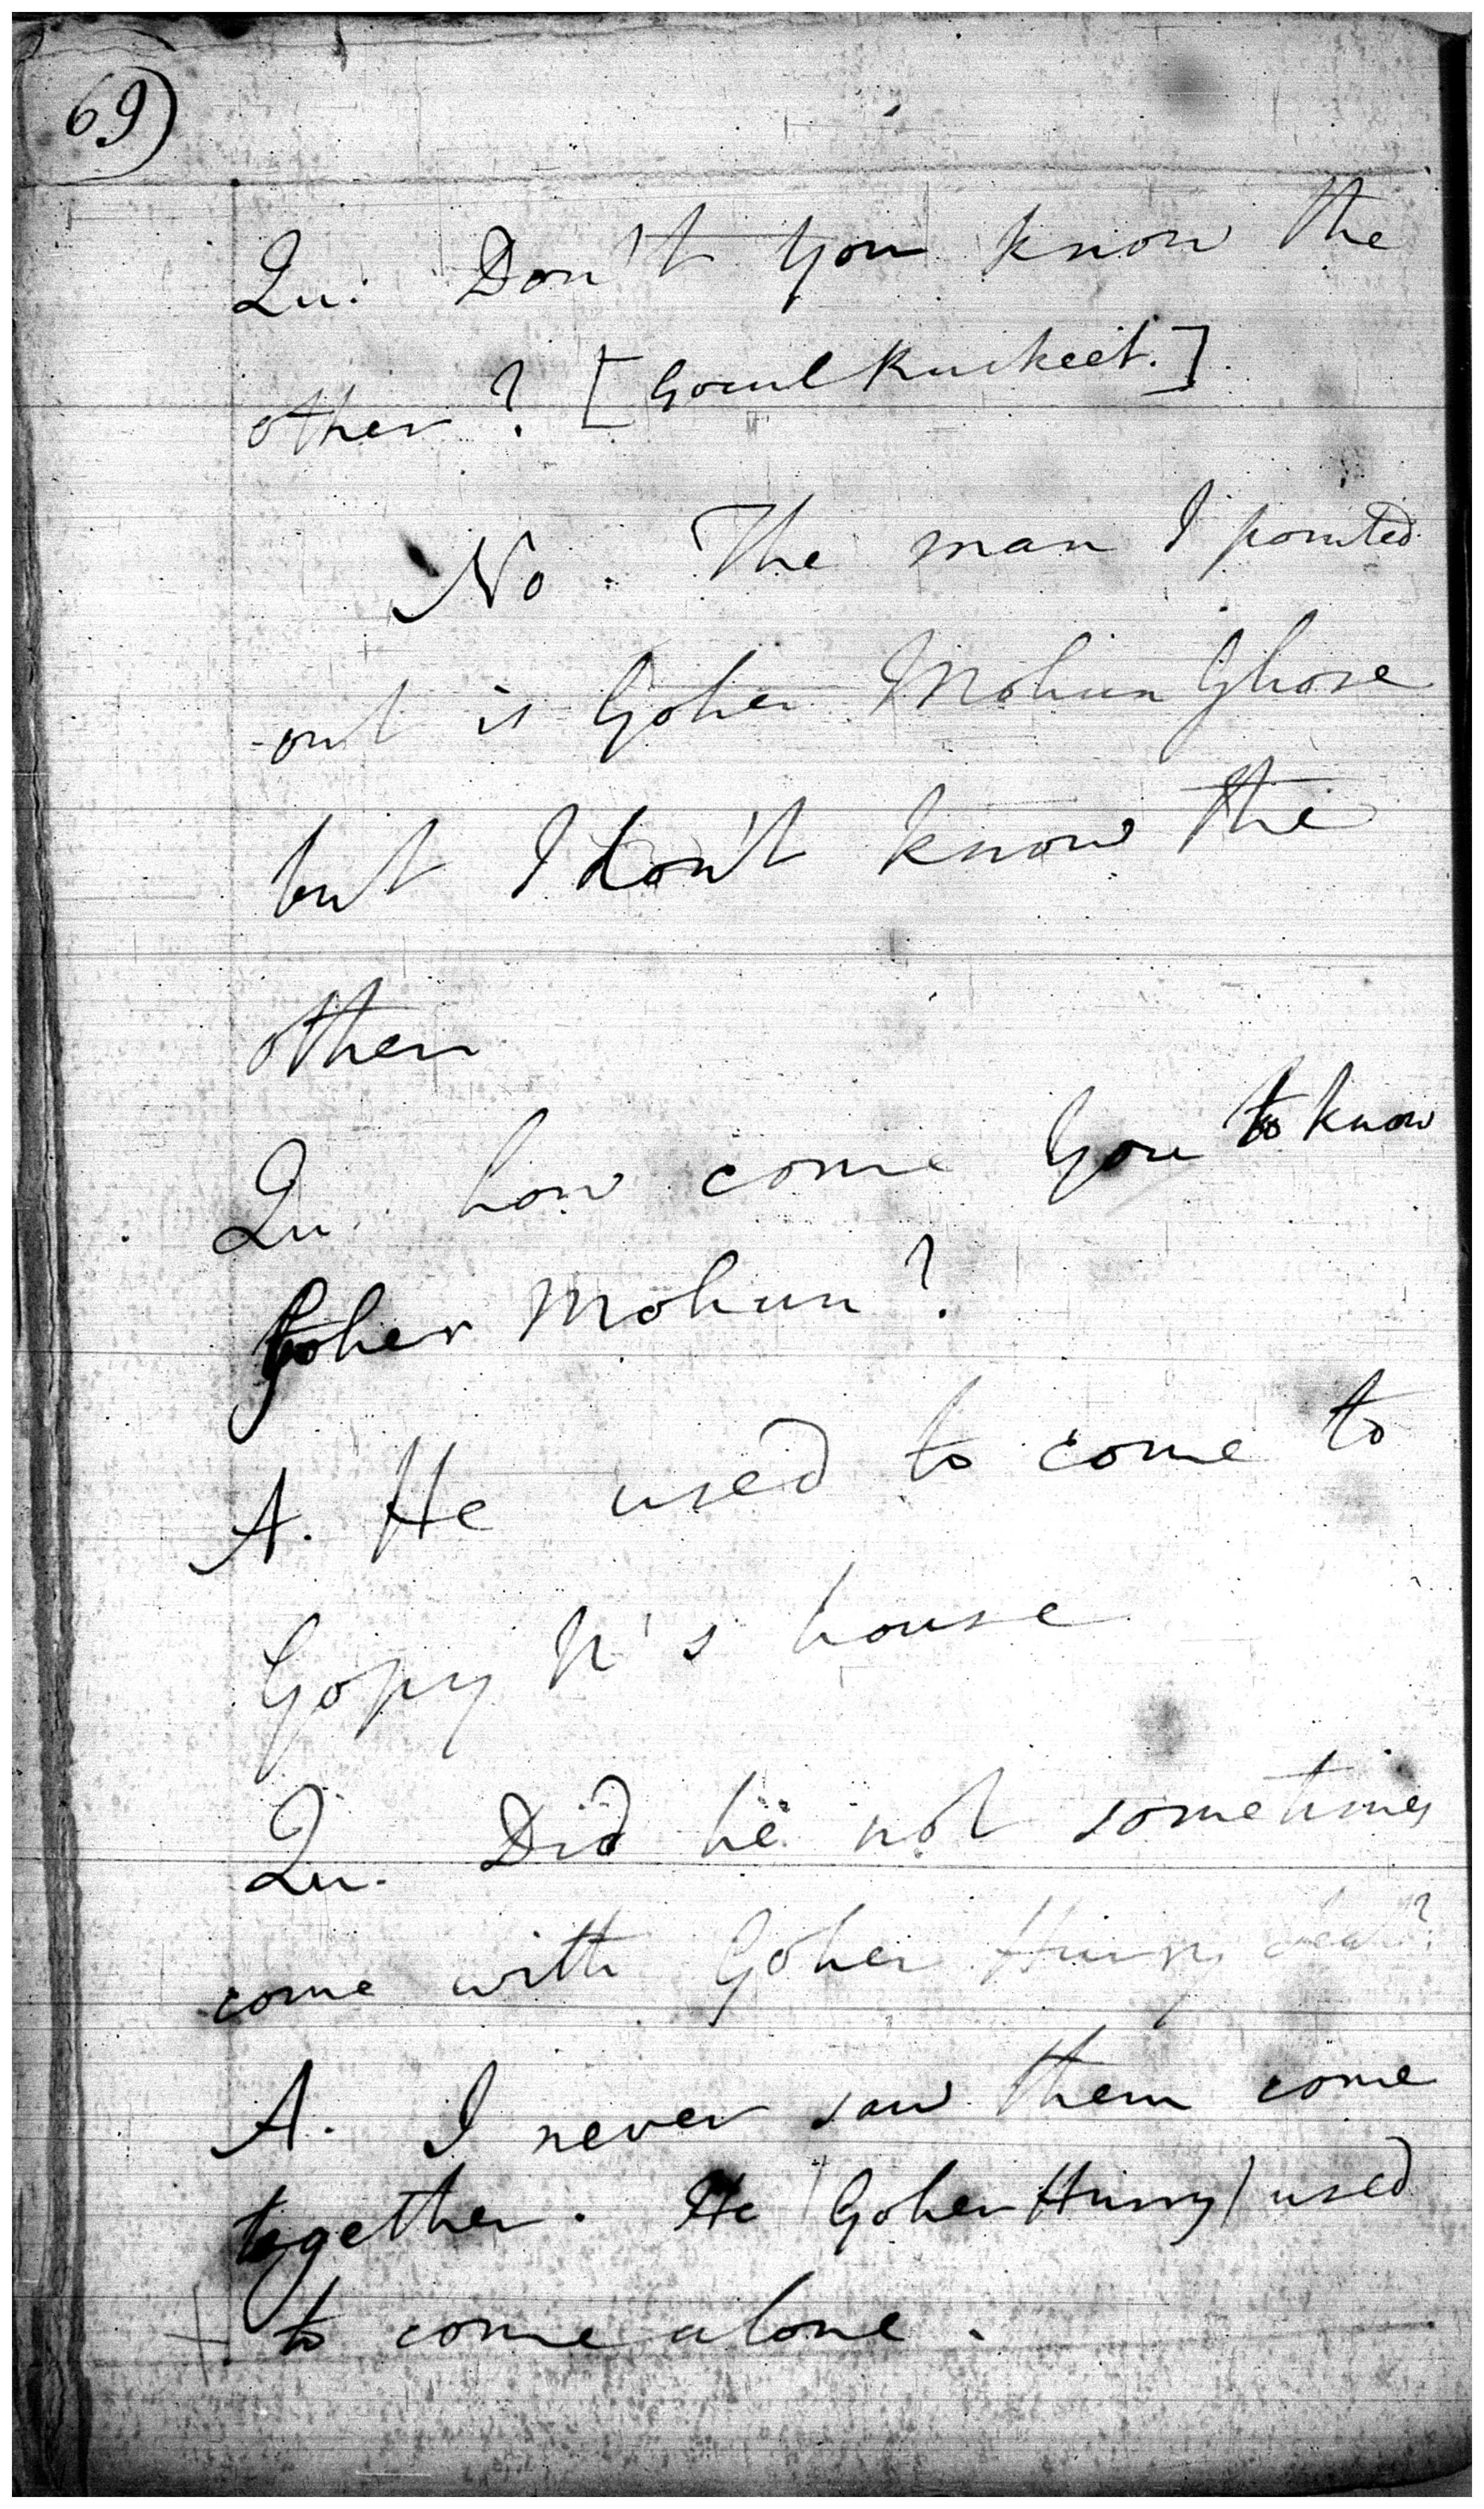 69)
Qu: Don't you know the
other? [Gocul Ruckeet.]
No. The man I pointed
out is Goher Mohun Ghose
but I don't know the
other
Qu. how come you to know
Goher Mohun?
A. He used to come to
Gopy N's house
Qu. Did he not sometimes
come with Goher Hurry
A. I never saw them come
together. He (Goher Hurry) used
to come alone.